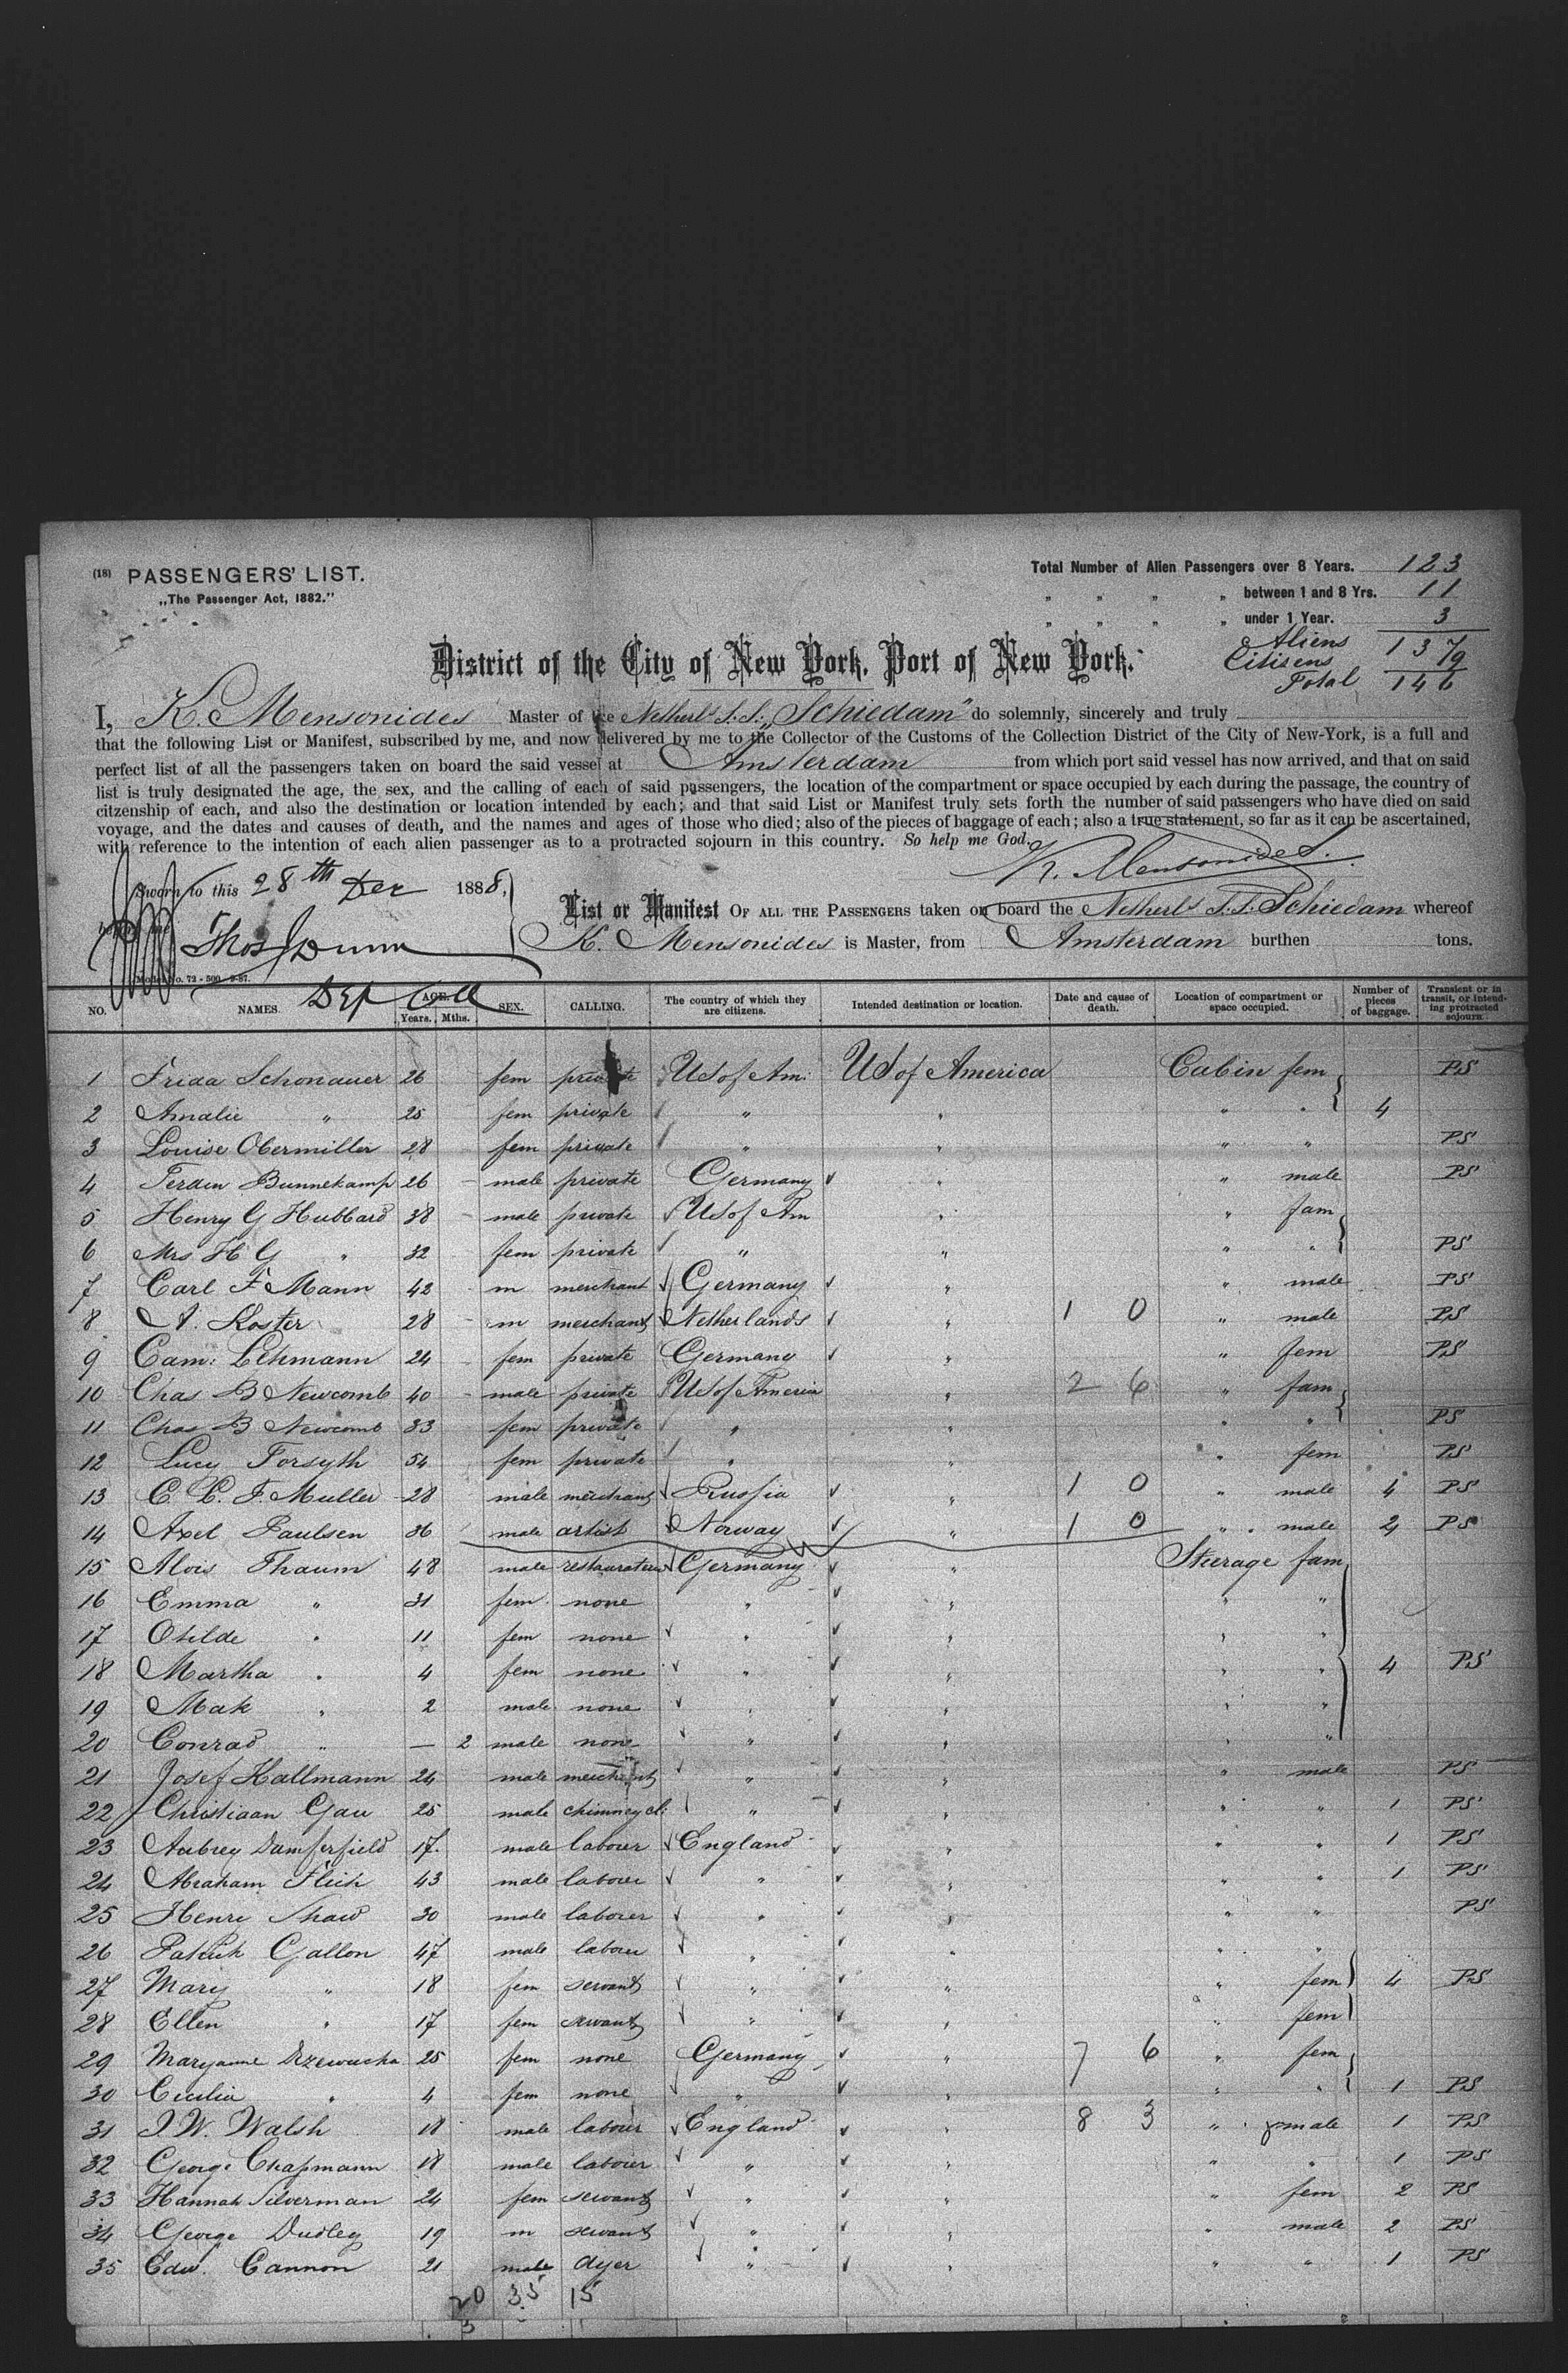 (18) PASSENGERS' LIST.
„The Passenger Act, 1882."
Total Number of Alien Passengers over 8 Years. 123
„ „ „ „ between 1 and 8 Yrs. 11
„ „ „ „ under 1 Year. 3
Aliens 137
Citisens 9
Total 146
District of the City of New York, Port of New York.
I, K. Mensonides Master of the Netherl. S.S. „Schiedam" do solemnly, sincerely and truly
that the following List or Manifest, subscribed by me, and now delivered by me to the Collector of the Customs of the Collection District of the City of New-York, is a full and
perfect list of all the passengers taken on board the said vessel at Amsterdam from which port said vessel has now arrived, and that on said
list is truly designated the age, the sex, and the calling of each of said passengers, the location of the compartment or space occupied by each during the passage, the country of
citzenship of each, and also the destination or location intended by each; and that said List or Manifest truly sets forth the number of said passengers who have died on said
voyage, and the dates and causes of death, and the names and ages of those who died; also of the pieces of baggage of each; also a true statement, so far as it can be ascertained,
with reference to the intention of each alien passenger as to a protracted sojourn in this country. So help me God.
K. Mensonides.
Sworn to this 28th Dec 1888,
List or Manifest OF ALL THE PASSENGERS taken on board the Netherl. S.S. Schiedam whereof
Thos J Dunn
K. Mensonides is Master, from Amsterdam burthen tons.
Model No. 72 - 500 - 9-87.
Dep Coll
NO. NAMES. AGE. Years. Mths. SEX. CALLING. The country of which they are citizens. Intended destination or location. Date and cause of death. Location of compartment or space occupied. Number of pieces of baggage. Transient or in transit, or intending protracted sojourn.
1 Frida Schonauer 26 fem private US of Am. US of America Cabin fem PS
2 Amalie „ 25 fem private „ „ „ „ 4
3 Louise Obermiller 28 fem private „ „ „ „ PS
4 Ferdin Bunnekamp 26 male private Germany „ „ male PS
5 Henry G Hubbard 38 male private US of Am „ „ fam
6 Mrs H G „ 32 fem private „ „ „ „ PS
7 Carl F Mann 42 m merchant Germany „ „ male PS
8 A. Koster 28 m merchant Netherlands „ 1 0 „ male PS
9 Cam: Lehmann 24 fem private Germany „ „ fem PS
10 Chas B Newcomb 40 male private US of America „ 2 6 „ fam
11 Chas B Newcomb 33 fem private „ „ „ „ PS
12 Lucy Forsyth 54 fem private „ „ „ fem PS
13 C. C. F. Muller 28 male merchant Russia „ 1 0 „ male 4 PS
14 Axel Paulsen 36 male artist Norway „ 1 0 „ male 2 PS
15 Alois Thaum 48 male restaurateur Germany „ Steerage fam
16 Emma „ 31 fem none „ „ „ „
17 Otilde „ 11 fem none „ „ „ „
18 Martha „ 4 fem none „ „ „ „ 4 PS
19 Mak „ 2 male none „ „ „ „
20 Conrad „ — 2 male none „ „ „ „
21 Josef Kallmann 24 male merchant „ „ „ male PS
22 Christiaan Gau 25 male chimney cl: „ „ „ „ 1 PS
23 Aubrey 17 male labourer England „ „ „ 1 PS
24 Abraham 43 male labourer „ „ „ „ 1 PS
25 Henry Shaw 30 male labourer „ „ „ „ PS
26 Patrick Gallon 47 male labourer „ „ „ „
27 Mary „ 18 fem servant „ „ „ fem 4 PS
28 Ellen „ 17 fem servant „ „ „ fem
29 Maryanne 25 fem none Germany „ 7 6 „ fem
30 Cecilia „ 4 fem none „ „ „ „ 1 PS
31 J. W. Walsh 18 male labourer England „ 8 3 „ male 1 PS
32 George Chapmann 18 male labourer „ „ „ „ 1 PS
33 Hannah Silverman 24 fem servant „ „ „ fem 2 PS
34 George Dudley 19 m servant „ „ „ male 2 PS
35 Edw. Cannon 21 male dyer „ „ „ „ 1 PS
20 35 15
3